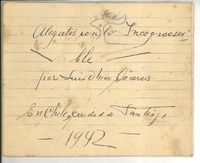 Alegatos con lo Incognosci
ble
por Luis Omar Cáceres
En Chile, ciudad de Santiago
- 1942 -